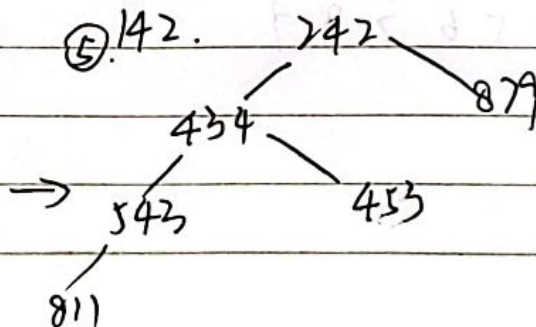 ⑤.142. 242
879
434
→ 543 453
811